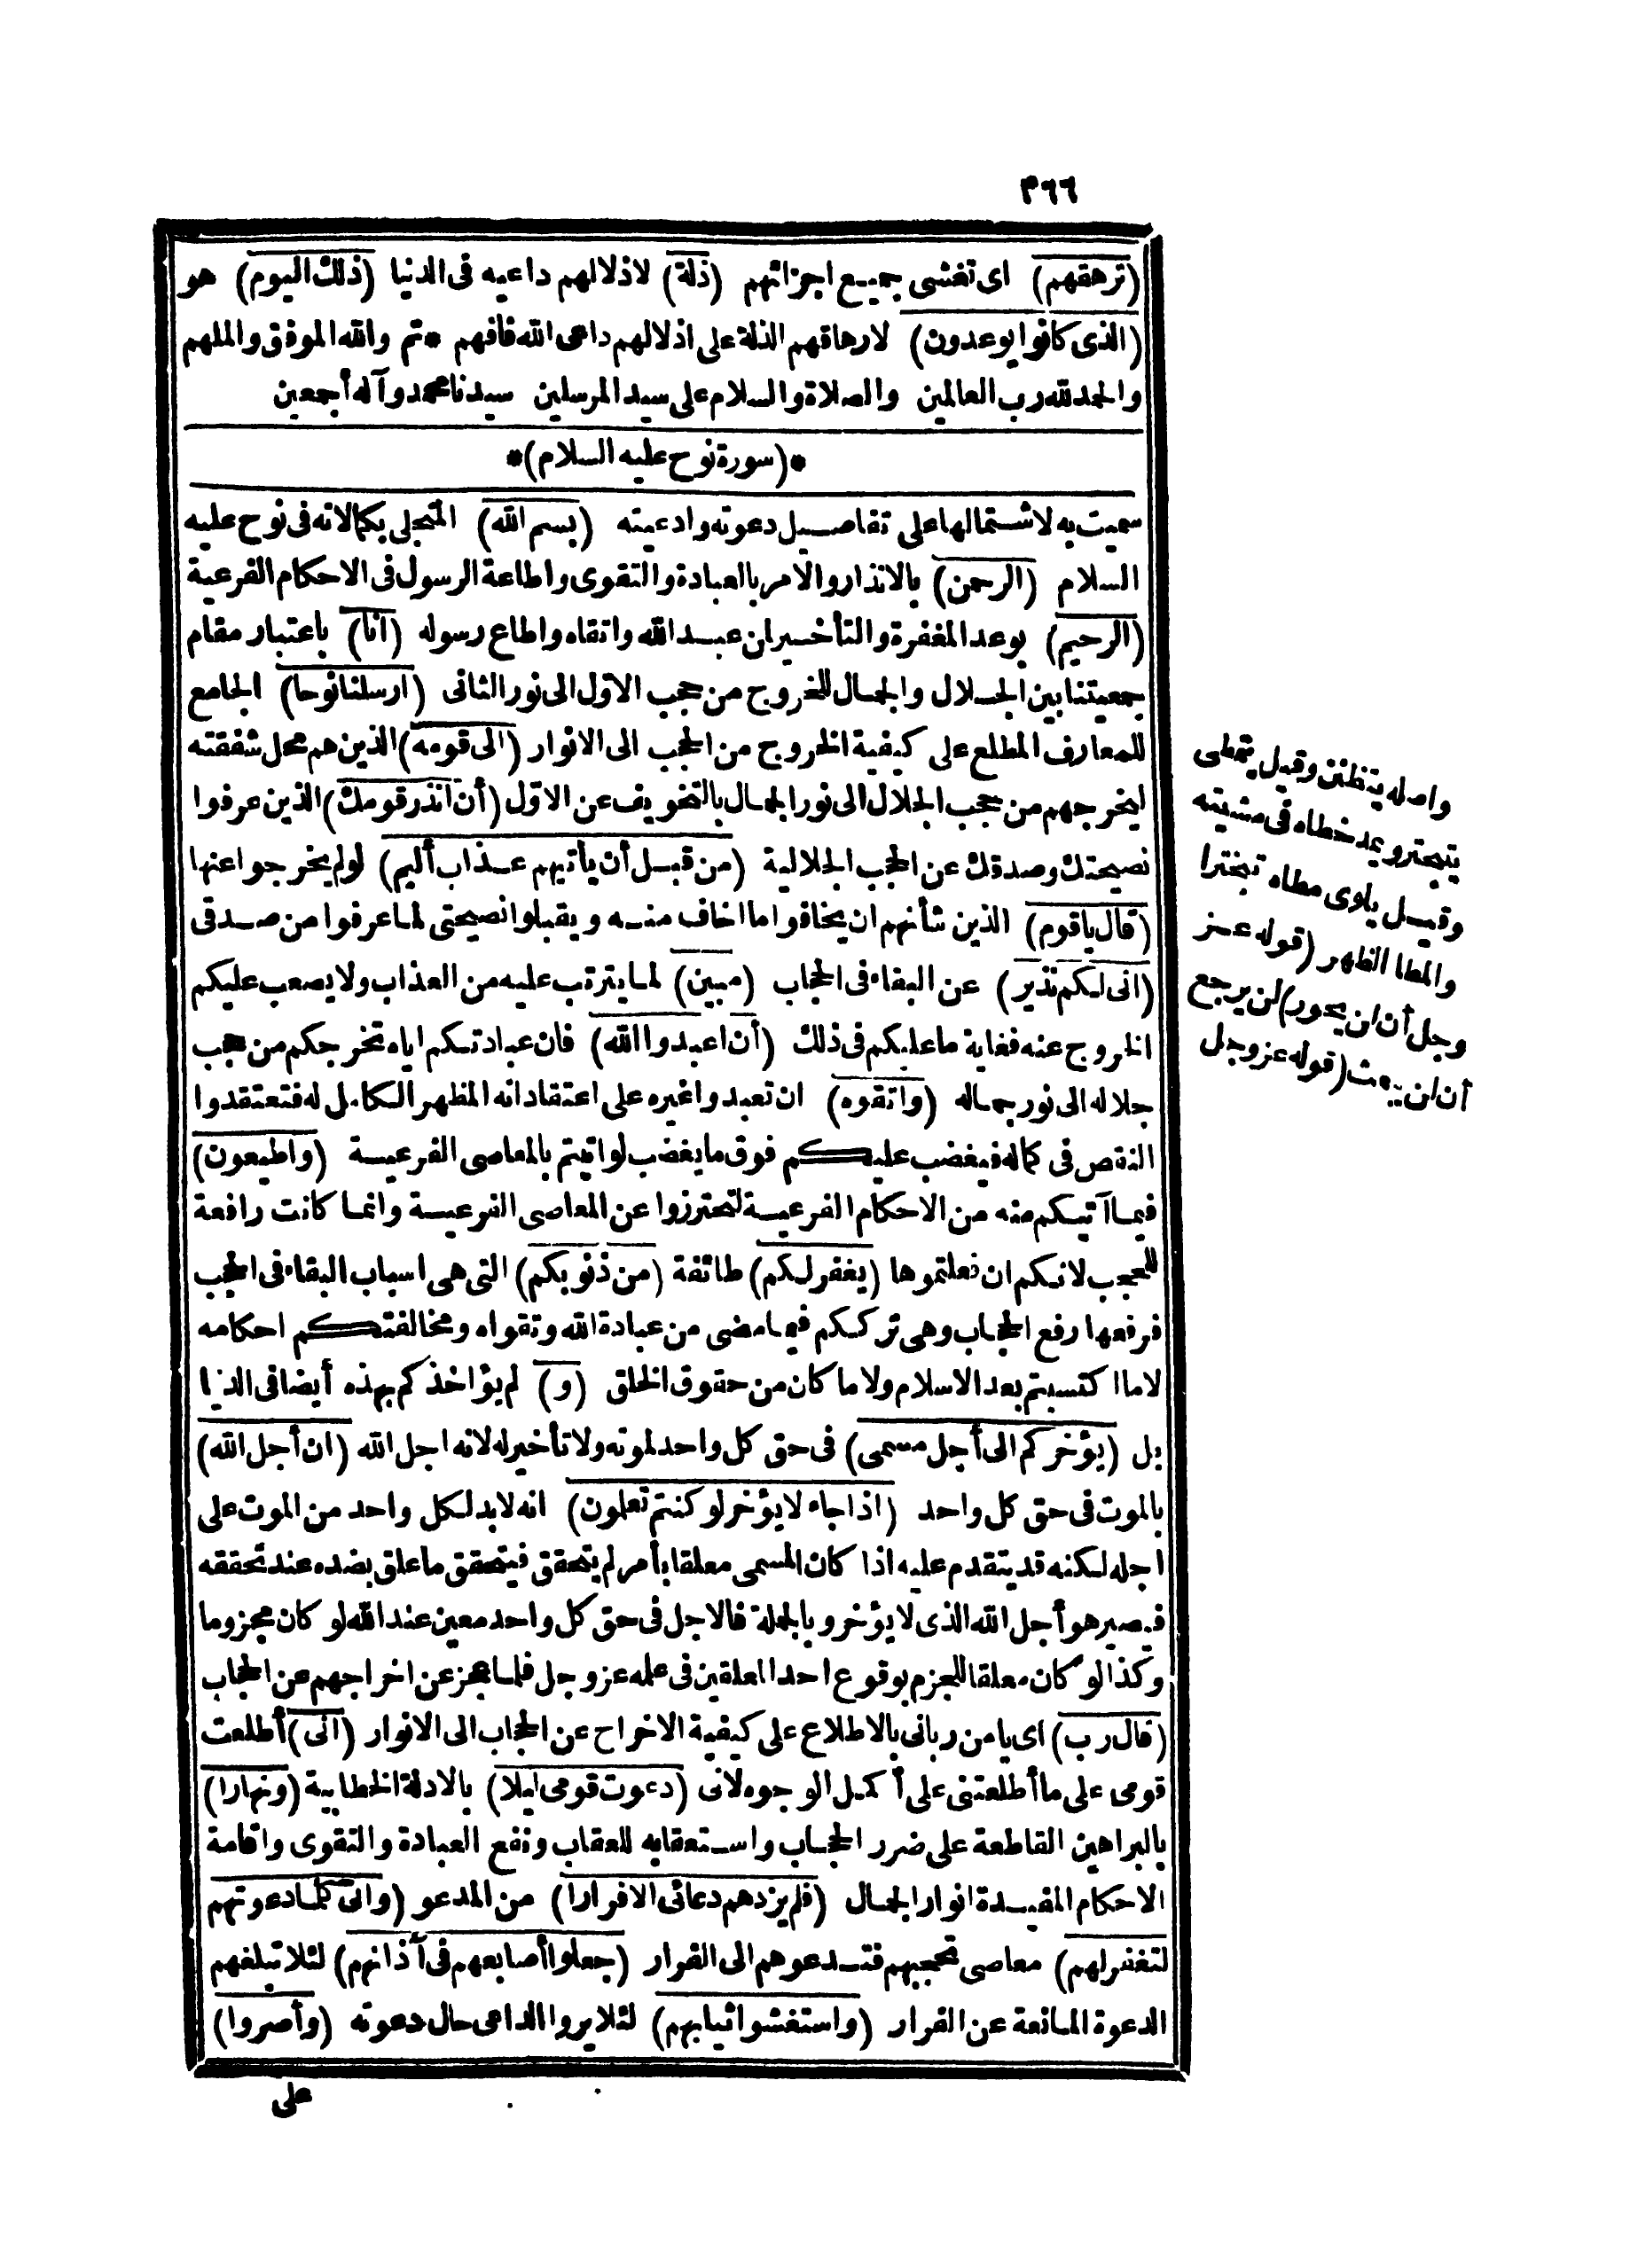 ٣٦٦
(ترهقهم) اى تغشى جميع اجزائهم (ذلة) لاذلالهم داعيه فى الدنيا (ذلك اليوم) هو
(الذى كانوا يوعدون) لارهاقهم الذلة على اذلالهم داعى الله فافهم *تم والله الموفق والملهم
والحمد لله رب العالمين والصلاة والسلام على سيد المرسلين سيدنا محمد وآله أجمعين
*(سورة نوح عليه السلام)*
سميت به لاشتمالها على تفاصيل دعوته وادعيته (بسم الله) المتجلى بكمالاته فى نوح عليه
السلام (الرحمن) بالانذار والامر بالعبادة والتقوى واطاعة الرسول فى الاحكام الفرعية
(الرحيم) بوعد المغفرة والتأخير ان عبد الله واتقاه واطاع رسوله (انا) باعتبار مقام
جمعيتنا بين الجلال والجمال للخروج من حجب الاول الى نور الثانى (ارسلنا نوحا) الجامع
للمعارف المطلع على كيفية الخروج من الحجب الى الانوار (الى قومه) الذين هم محل شفقته
ليخرجهم من حجب الجلال الى نور الجمال بالتخويف عن الاول (أن انذر قومك) الذين عرفوا
نصيحتك وصدقك عن الحجب الجلالية (من قبل أن يأتيهم عذاب أليم) لو لم يخرجوا عنها
(قال ياقوم) الذين شأنهم ان يخافوا ما اخاف منه ويقبلوا نصيحتى لما عرفوا من صدقى
(انى لكم نذير) عن البقاء فى الحجاب (مبين) لما يترتب عليه من العذاب ولا يصعب عليكم
الخروج عنه فغاية ما عليكم فى ذلك (أن اعبدوا الله) فان عبادتكم اياه تخرجكم من حجب
جلاله الى نور جماله (واتقوه) ان تعبدوا غيره على اعتقاد انه المظهر الكامل له فتعتقدوا
النقص فى كماله فيغضب عليكم فوق ما يغضب لو اتيتم بالمعاصى الفرعية (واطيعون)
فيما آتيكم منه من الاحكام الفرعية لتحترزوا عن المعاصى الفرعية وانما كانت رافعة
للحجب لانكم ان فعلتموها (يغفر لكم) طائفة (من ذنوبكم) التى هى اسباب البقاء فى الحجب
فرفعها رفع الحجاب وهى ترككم فيما مضى من عبادة الله وتقواه ومخالفتكم احكامه
لا ما اكتسبتم بعد الاسلام ولا ما كان من حقوق الخلق (و) لم يؤاخذكم بهذه أيضا فى الدنيا
بل (يؤخركم الى أجل مسمى) فى حق كل واحد لموته ولا تأخير له لانه اجل الله (ان أجل الله)
بالموت فى حق كل واحد (اذا جاء لا يؤخر لو كنتم تعلمون) انه لا بد لكل واحد من الموت على
اجله لكنه قد يتقدم عليه اذا كان المسمى معلقا بأمر لم يتحقق فيتحقق ما علق بضده عند تحققه
فيصير هو أجل الله الذى لا يؤخر وبالجملة فالاجل فى حق كل واحد معين عند الله لو كان مجزوما
وكذا لو كان معلقا للجزم بوقوع احد المعلقين فى علمه عز وجل فلما عجز عن اخراجهم عن الحجاب
(قال رب) اى يا من ربانى بالاطلاع على كيفية الاخراج عن الحجاب الى الانوار (انى) أطلعت
قومى على ما أطلعتنى على أكمل الوجوه لانى (دعوت قومى ليلا) بالادلة الخطابية (ونهارا)
بالبراهين القاطعة على ضرر الحجاب واستعقابه للعقاب ونفع العبادة والتقوى واقامة
الاحكام المفيدة انوار الجمال (فلم يزدهم دعائى الا فرارا) من المدعو (وانى كلما دعوتهم
لتغفر لهم) معاصى تحجبهم فتدعوهم الى الفرار (جعلوا أصابعهم فى آذانهم) لئلا تبلغهم
الدعوة المانعة عن الفرار (واستغشوا ثيابهم) لئلا يروا الداعى حال دعوته (وأصروا)
على
واصله يتظنن وقيل يتمطى
يتبختر ويمد خطاه فى مشيته
وقيل يلوى مطاه تبخترا
والمطا الظهر (قوله عز
وجل أن لن يحور) لن يرجع
أن لن يبعث (قوله عز وجل